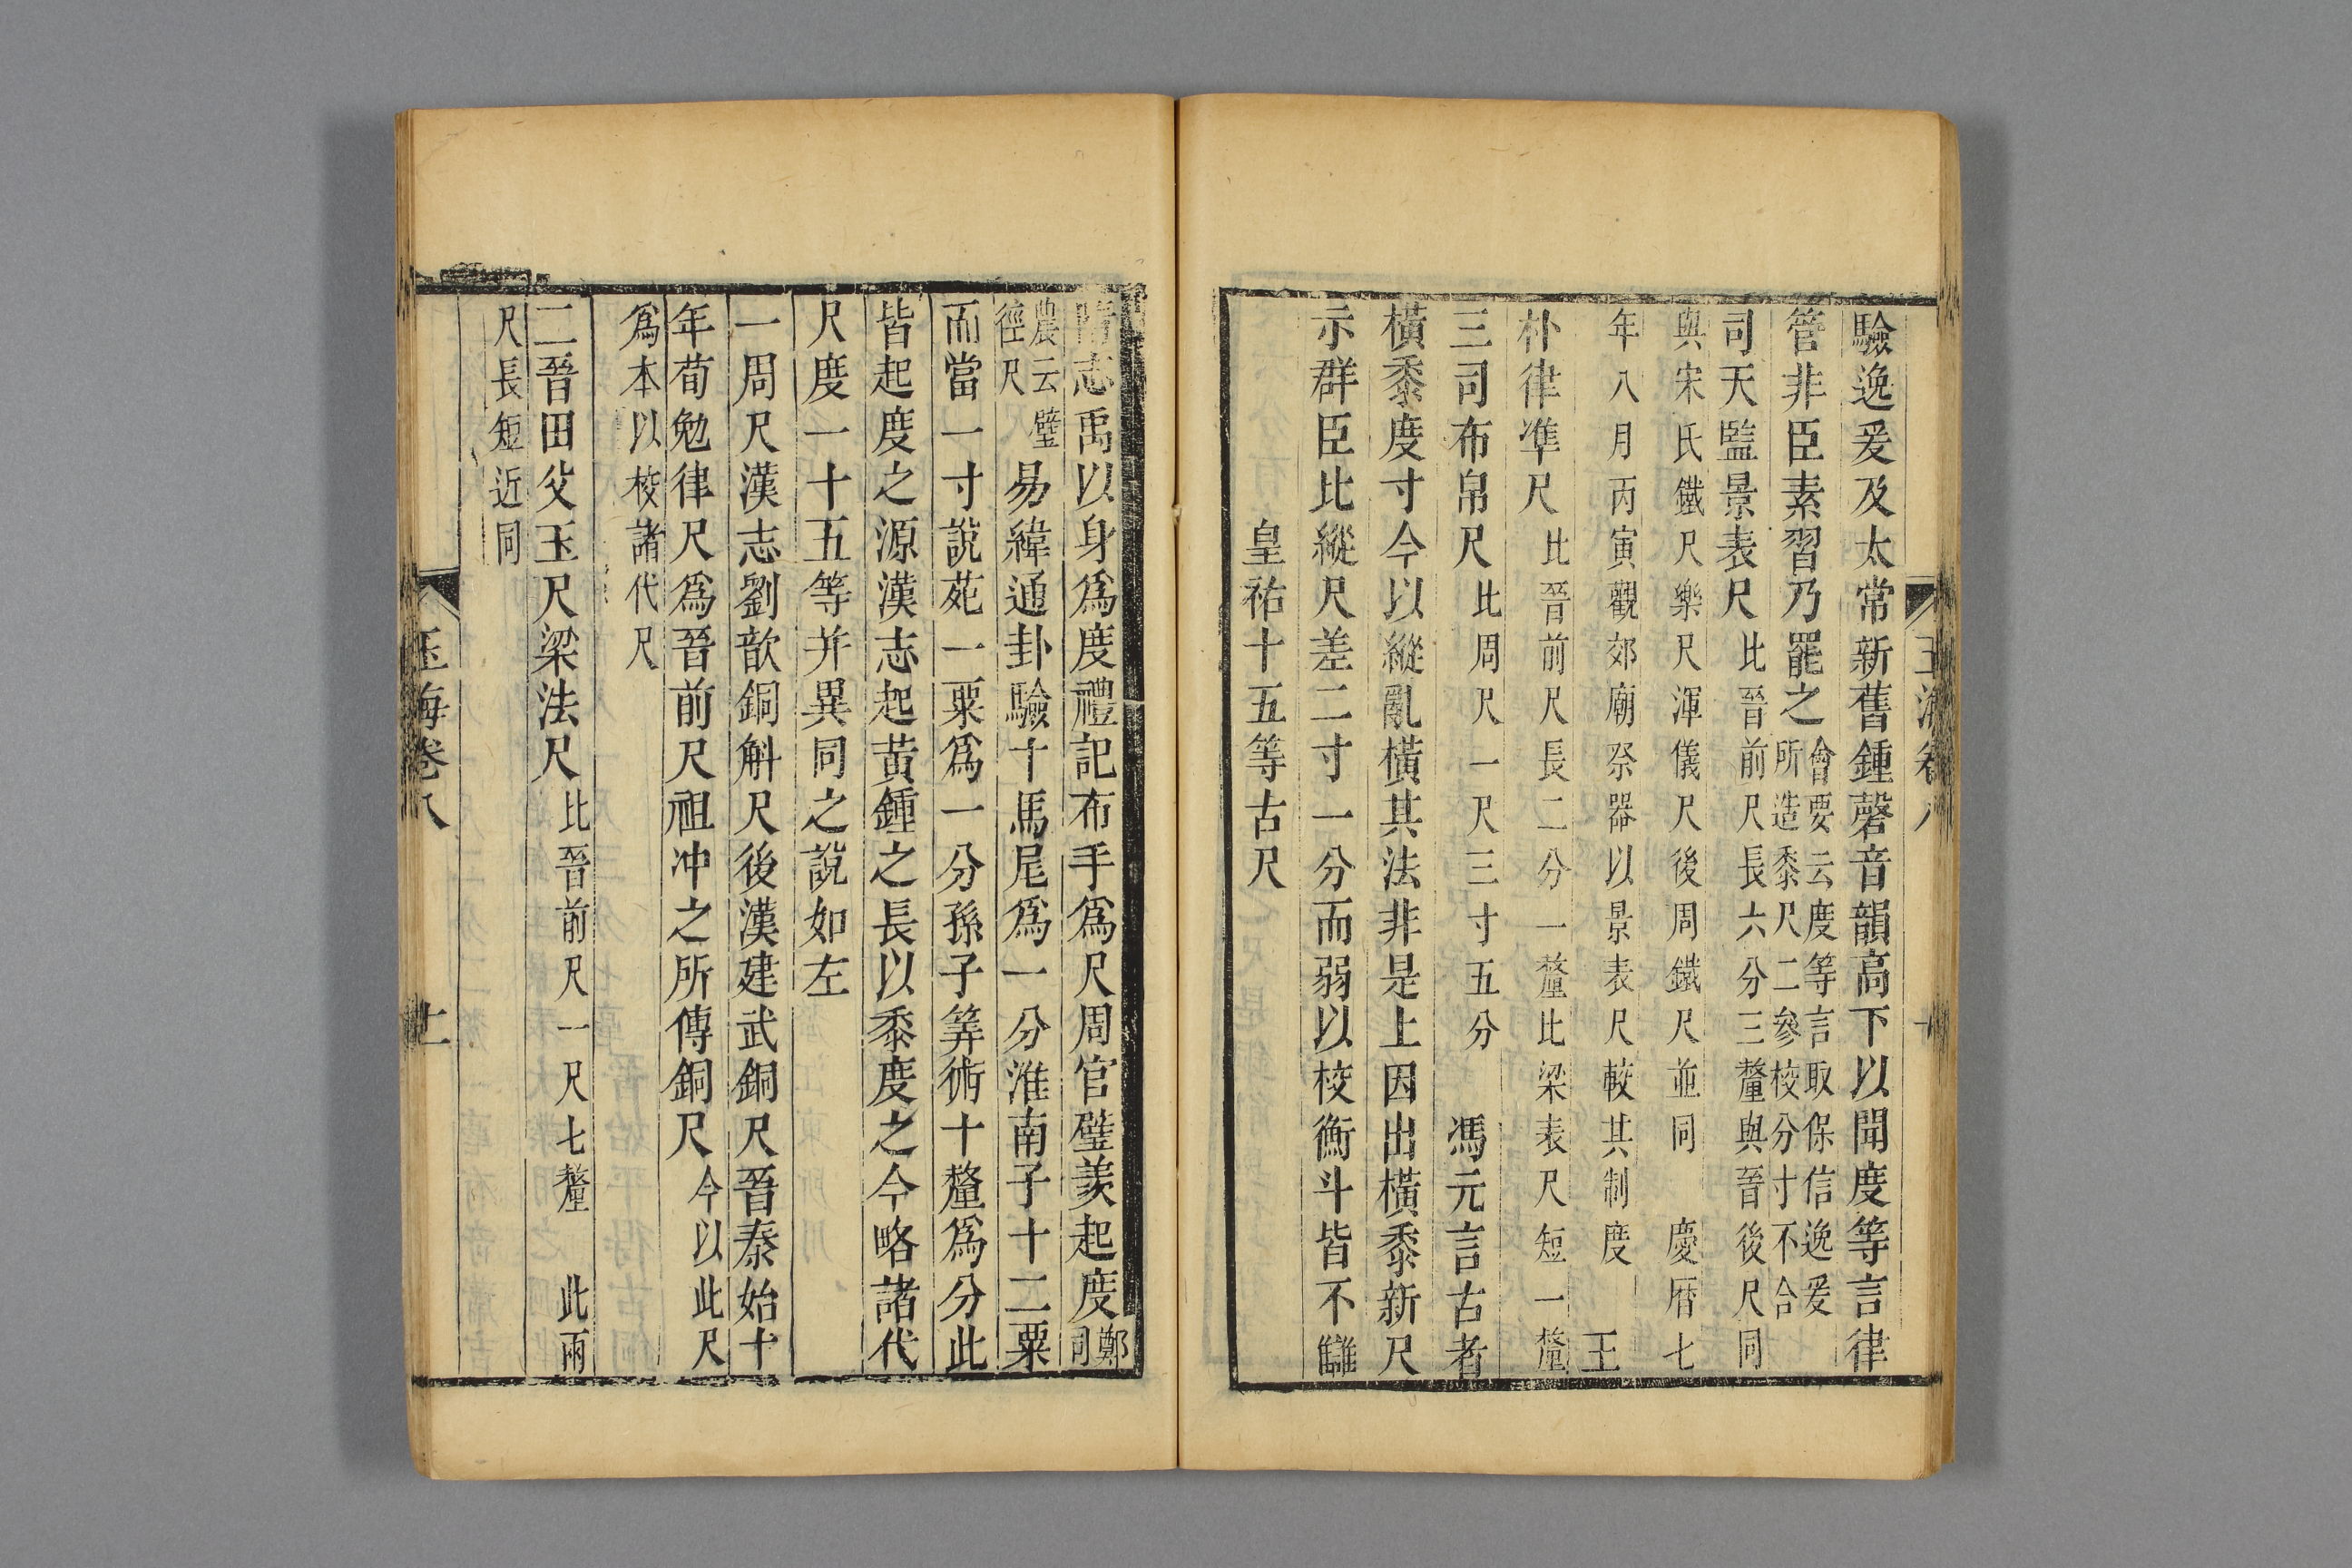 驗逸爰及太常新舊鍾磬音韻高下以聞度等言律
管非臣素習乃罷之會要云度等言取保信逸爰所造黍尺二參校分寸不合
司天監景表尺比晉前尺長六分三釐與晉後尺同
與宋氏鐵尺樂尺渾儀尺後周鐵尺並同 慶曆七
年八月丙寅觀郊廟祭器以景表尺較其制度 王
朴律凖尺比晉前尺長二分一釐比梁表尺短一釐
三司布帛尺比周尺一尺三寸五分 馮元言古者
橫黍度寸今以縱亂橫其法非是上因出橫黍新尺
示群臣比縱尺差二寸一分而弱以校衡斗皆不讎
皇祐十五等古尺
隋志禹以身爲度禮記布手爲尺周官璧羨起度鄭司
農云璧徑尺易緯通卦驗十馬尾爲一分淮南子十二粟
而當一寸說苑一粟爲一分孫子筭術十釐爲分此
皆起度之源漢志起黃鍾之長以黍度之今略諸代
尺度一十五等并異同之說如左
一周尺漢志劉歆銅斛尺後漢建武銅尺晉泰始十
年荀勉律尺爲晉前尺祖冲之所傳銅尺今以此尺
爲本以校諸代尺
二晉田父玉尺梁法尺比晉前尺一尺七釐 此兩
尺長短近同
玉海卷八
十一